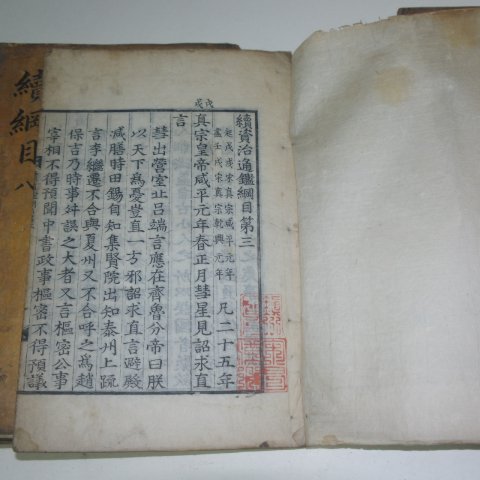 續資治通鑑綱目第三
起戊戌宋真宗咸平元年
盡壬戌宋真宗乾興元年
凡二十五年
戊戌
真宗皇帝咸平元年春正月彗星見詔求直
言
彗出營室北呂端言應在齊魯分帝曰朕
以天下爲憂豈直一方邪詔求直言避殿
減膳時田錫自知集賢院出知泰州上疏
言李繼遷不合與夏州又不合呼之爲趙
保吉乃時事舛誤之大者又言樞密公事
宰相不得預聞中書政事樞密不得預議
續綱目 八